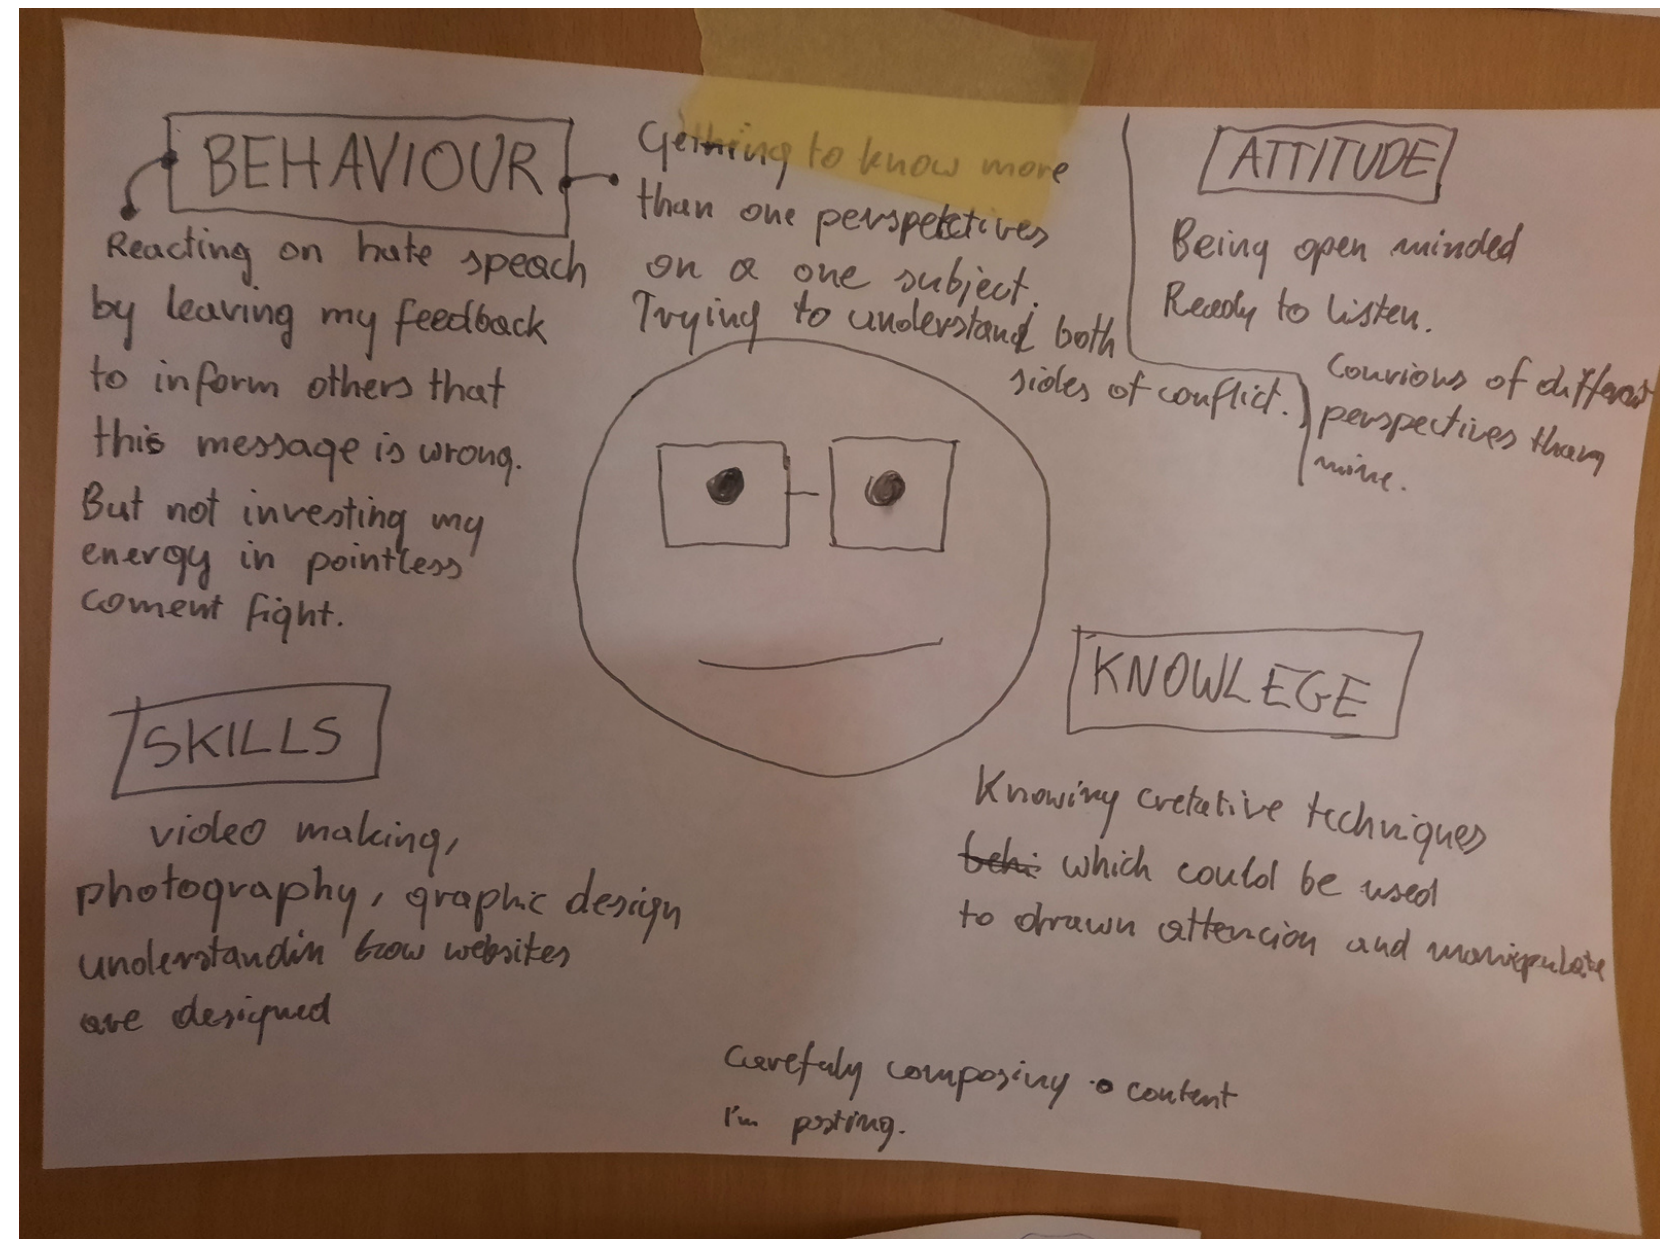 BEHAVIOUR
Reacting on hate speach
by leaving my feedback
to inform others that
this message is wrong.
But not investing my
energy in pointless
coment fight.
Gething to know more
than one perspectives
on a one subject.
Trying to understand both
sides of conflict.
ATTITUDE
Being open minded
Ready to listen.
Courious of different
perspectives than
mine.
SKILLS
video making,
photography, graphic design
understandin how websites
are designed
KNOWLEGE
Knowing cretative techniques
which could be used
to drawn attencion and manipulate
Carefuly composing content
I'm posting.